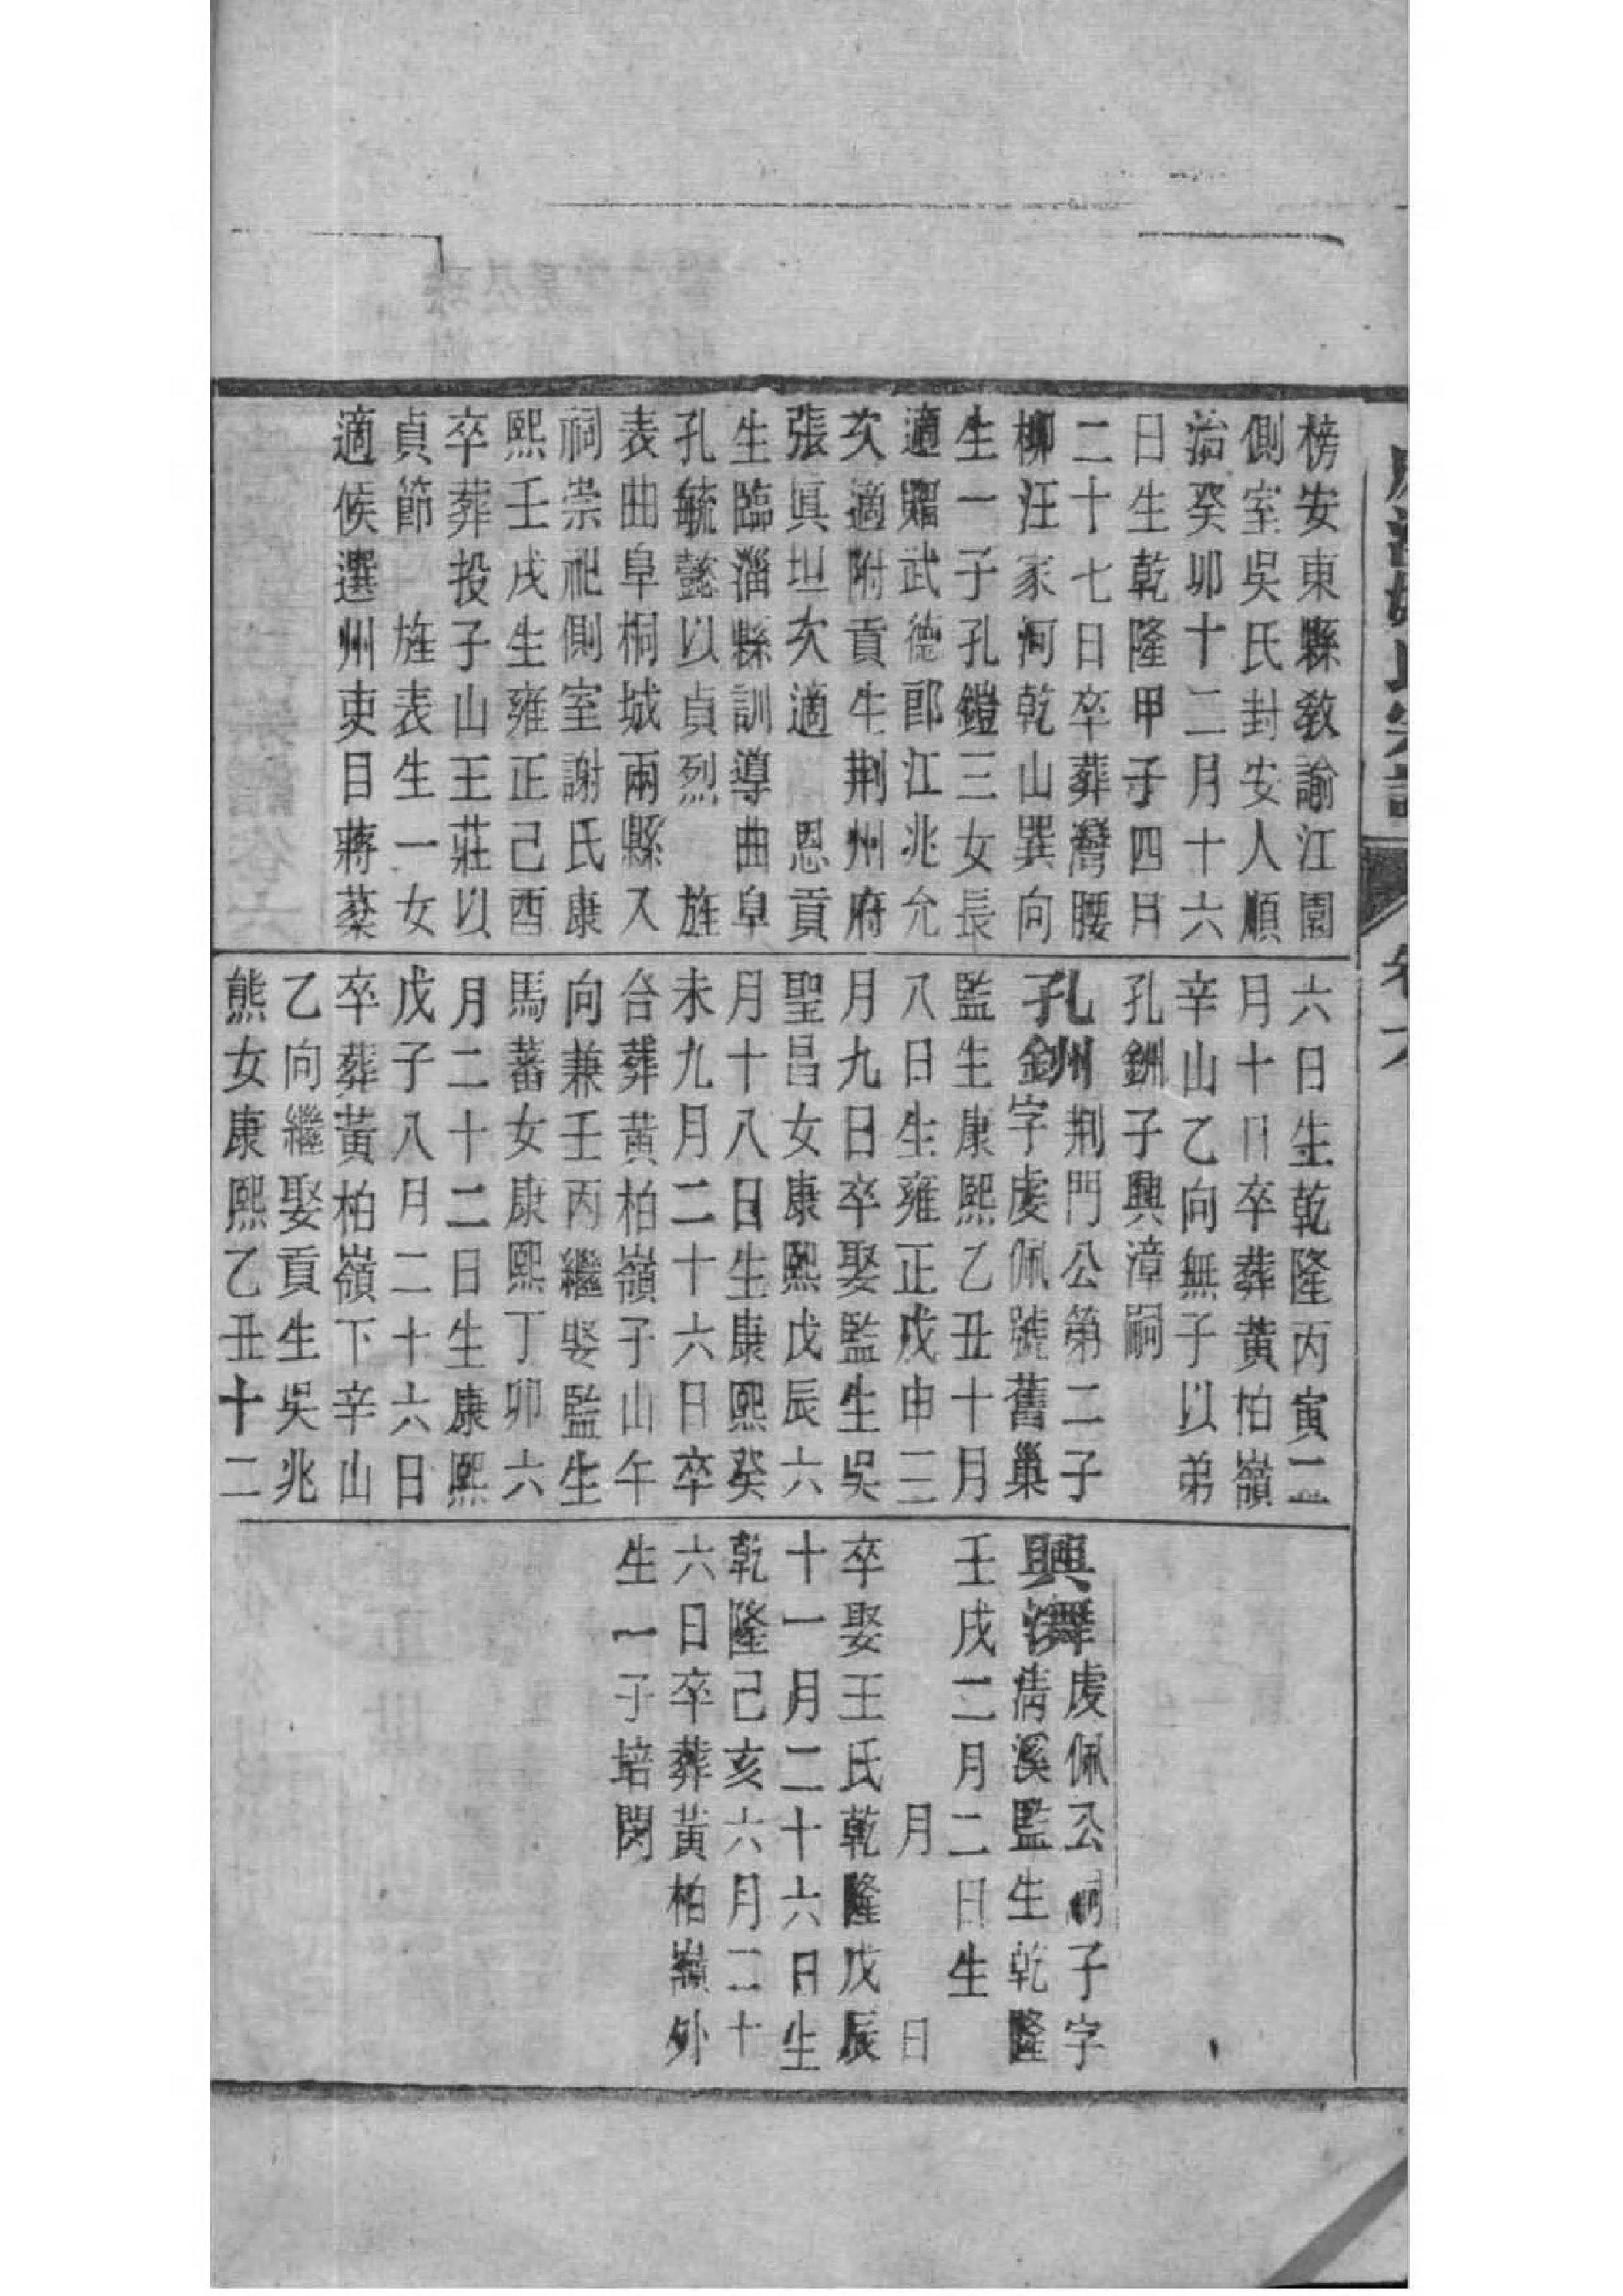 榜安東縣教諭江園
側室吳氏封安人順
治癸卯十二月十六
日生乾隆甲子四月
二十七日卒葬灣腰
柳汪家河乾山巽向
生一子孔鐙三女長
適贈武德郎江兆允
次適附貢生荆州府
張眞坦次適 恩貢
生臨淄縣訓導曲阜
孔毓懿以貞烈 旌
表曲阜桐城兩縣入
祠崇祀側室謝氏康
熙壬戌生雍正己酉
卒葬投子山王莊以
貞節 旌表生一女
適候選州吏目蔣棻
六日生乾隆丙寅二
月十日卒葬黃柏嶺
辛山乙向無子以弟
孔釧子興漳嗣
孔釧荆門公第二子
字虔佩號舊巢
監生康熙乙丑十月
八日生雍正戊申三
月九日卒娶監生吳
聖昌女康熙戊辰六
月十八日生康熙癸
未九月二十六日卒
合葬黃柏嶺子山午
向兼壬丙繼娶監生
馬蕃女康熙丁卯六
月二十二日生康熙
戊子八月二十六日
卒葬黃柏嶺下辛山
乙向繼娶貢生吳兆
熊女康熙乙丑十二
興 虔佩公嗣子字
淸溪監生乾隆
壬戌二月二日生
月 日
卒娶王氏乾隆戊辰
十一月二十六日生
乾隆己亥六月二十
六日卒葬黃柏嶺外
生一子培閔
卷六